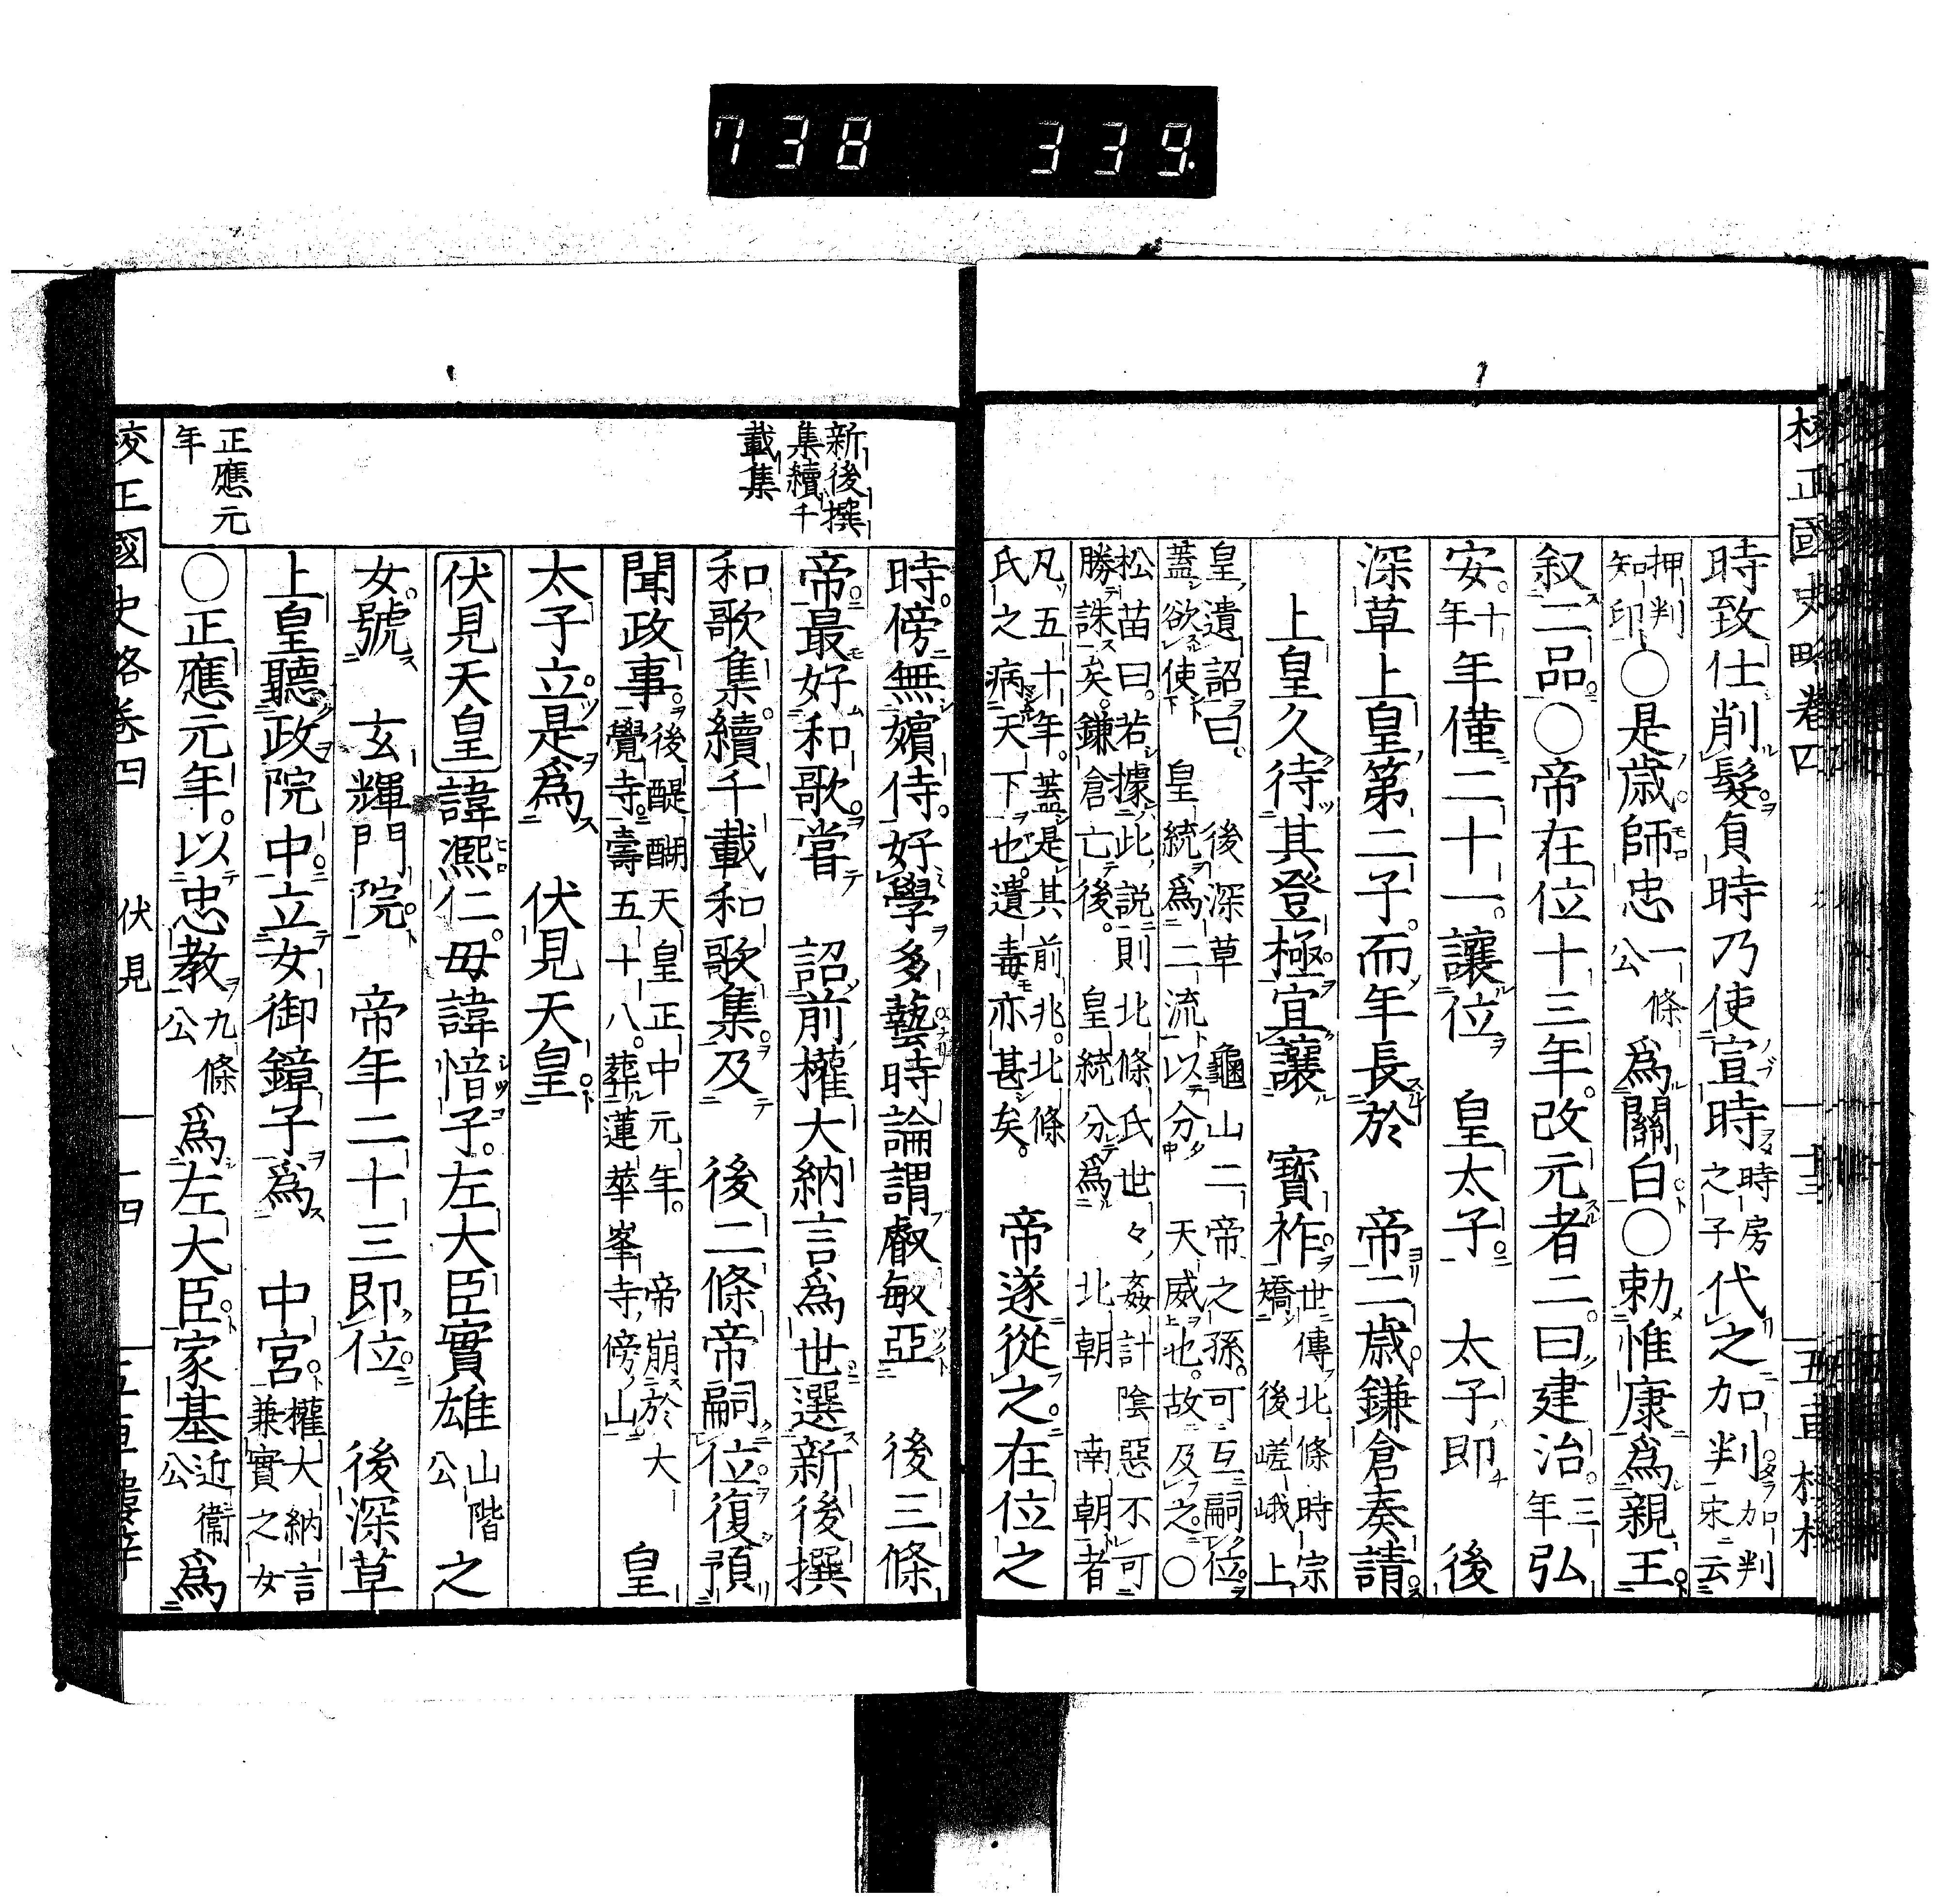 738 339
校正國史略卷四
時致仕削髮貞時乃使宣時時房之子代之加判加判宋云
押判知印○是歲師忠一條公爲關白○勅惟康爲親王
叙二品○帝在位十三年改元者二曰建治三年弘
安十年年僅二十一讓位 皇太子 太子即 後
深草上皇第二子而年長於 帝二歲鎌倉奏請
上皇久待其登極宜讓 寶祚世傳北條時宗矯後嵯峨上
皇遺詔曰 後深草龜山二帝之孫可互嗣位蓋欲使 皇統爲二流以分 天威也故及之○
松苗曰若據此說則北條氏世々姦計陰惡不可勝誅矣鎌倉亡後皇統分爲 北朝南朝者
凡五十年蓋是其前兆北條氏之病天下也遺毒亦甚矣 帝遂從之在位之
新後撰集續千載集
時傍無嬪侍好學多藝時論謂叡敏亞 後三條
帝最好和歌嘗 詔前權大納言爲世選新後撰
和歌集續千載和歌集及 後二條帝嗣位復預
聞政事後醍醐天皇正中元年 帝崩於大覺寺壽五十八葬蓮華峯寺傍山 皇
太子立是爲 伏見天皇
伏見天皇 諱凞仁母諱愔子左大臣實雄山階公之
女號 玄輝門院 帝年二十三即位 後深草
上皇聽政院中立女御鏱子爲 中宮權大納言兼實之女
正應元年
○正應元年以忠教九條公爲左大臣家基近衞公爲
校正國史略卷四 伏見 十四